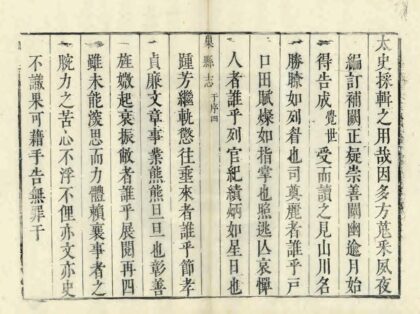 太史採輯之用哉因多方蒐采夙夜
編訂補闕正疑崇善闡幽逾月始
得告成覺世受而讀之見山川名
勝瞭如列眉也司奠麗者誰乎戶
口田賦燦如指掌也無逃亾哀憚
人者誰乎列官紀績炳如星日也
巢縣志 于序四
踵芳繼軌懲往垂來者誰乎節孝
貞廉文章事業熊熊旦旦也彰善
旌媺起衰振敝者誰乎展閱再四
雖未能淡思而力體賴襄事者之
腕力之苦心不浮不俚亦文亦史
不識果可藉手告無罪于